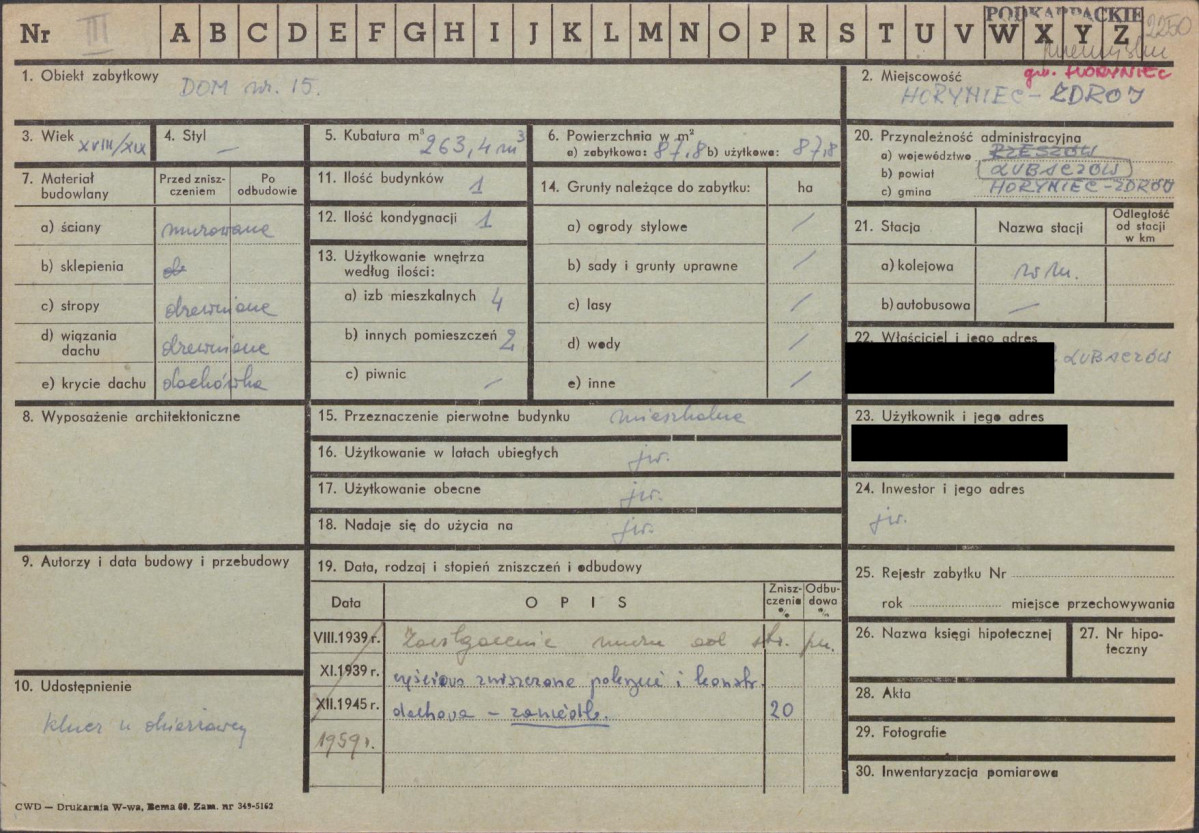 Nr III A B C D E F G H I J K L M N O P R S T U V W X Y Z
PODKARPACKIE 2250
gm. HORYNIEC
1. Obiekt zabytkowy DOM nr. 15.
2. Miejscowość HORYNIEC-ZDRÓJ
3. Wiek XVIII/XIX
4. Styl —
5. Kubatura m³ 263,4 m³
6. Powierzchnia w m²
a) zabytkowa: 87,8 b) użytkowa: 87,8
20. Przynależność administracyjna
a) województwo RZESZÓW
b) powiat LUBACZÓW
c) gmina HORYNIEC-ZDRÓJ
7. Materiał budowlany
Przed zniszczeniem
Po odbudowie
a) ściany murowane
b) sklepienia
c) stropy drewniane
d) wiązania dachu drewniane
e) krycie dachu dachówka
11. Ilość budynków 1
12. Ilość kondygnacji 1
13. Użytkowanie wnętrza według ilości:
a) izb mieszkalnych 4
b) innych pomieszczeń 2
c) piwnic /
14. Grunty należące do zabytku: ha
a) ogrody stylowe /
b) sady i grunty uprawne /
c) lasy /
d) wody /
e) inne /
21. Stacja
Nazwa stacji
Odległość od stacji w km
a) kolejowa w m.
b) autobusowa —
22. Właściciel i jego adres
LUBACZÓW
23. Użytkownik i jego adres
8. Wyposażenie architektoniczne
15. Przeznaczenie pierwotne budynku mieszkalne
16. Użytkowanie w latach ubiegłych jw.
17. Użytkowanie obecne jw.
18. Nadaje się do użycia na jw.
24. Inwestor i jego adres
jw.
9. Autorzy i data budowy i przebudowy
19. Data, rodzaj i stopień zniszczeń i odbudowy
Data
OPIS
Zniszczenie %
Odbudowa %
VIII.1939 r. muru od str. pn.
XI.1939 r. zniszczone pokrycie i konstr.
XII.1945 r. dachowa — 20
1959 r.
25. Rejestr zabytku Nr
rok miejsce przechowywania
26. Nazwa księgi hipotecznej
27. Nr hipoteczny
28. Akta
29. Fotografie
30. Inwentaryzacja pomiarowa
10. Udostępnienie
klucz u
CWD — Drukarnia W-wa, Bema 60. Zam. nr 349-5162